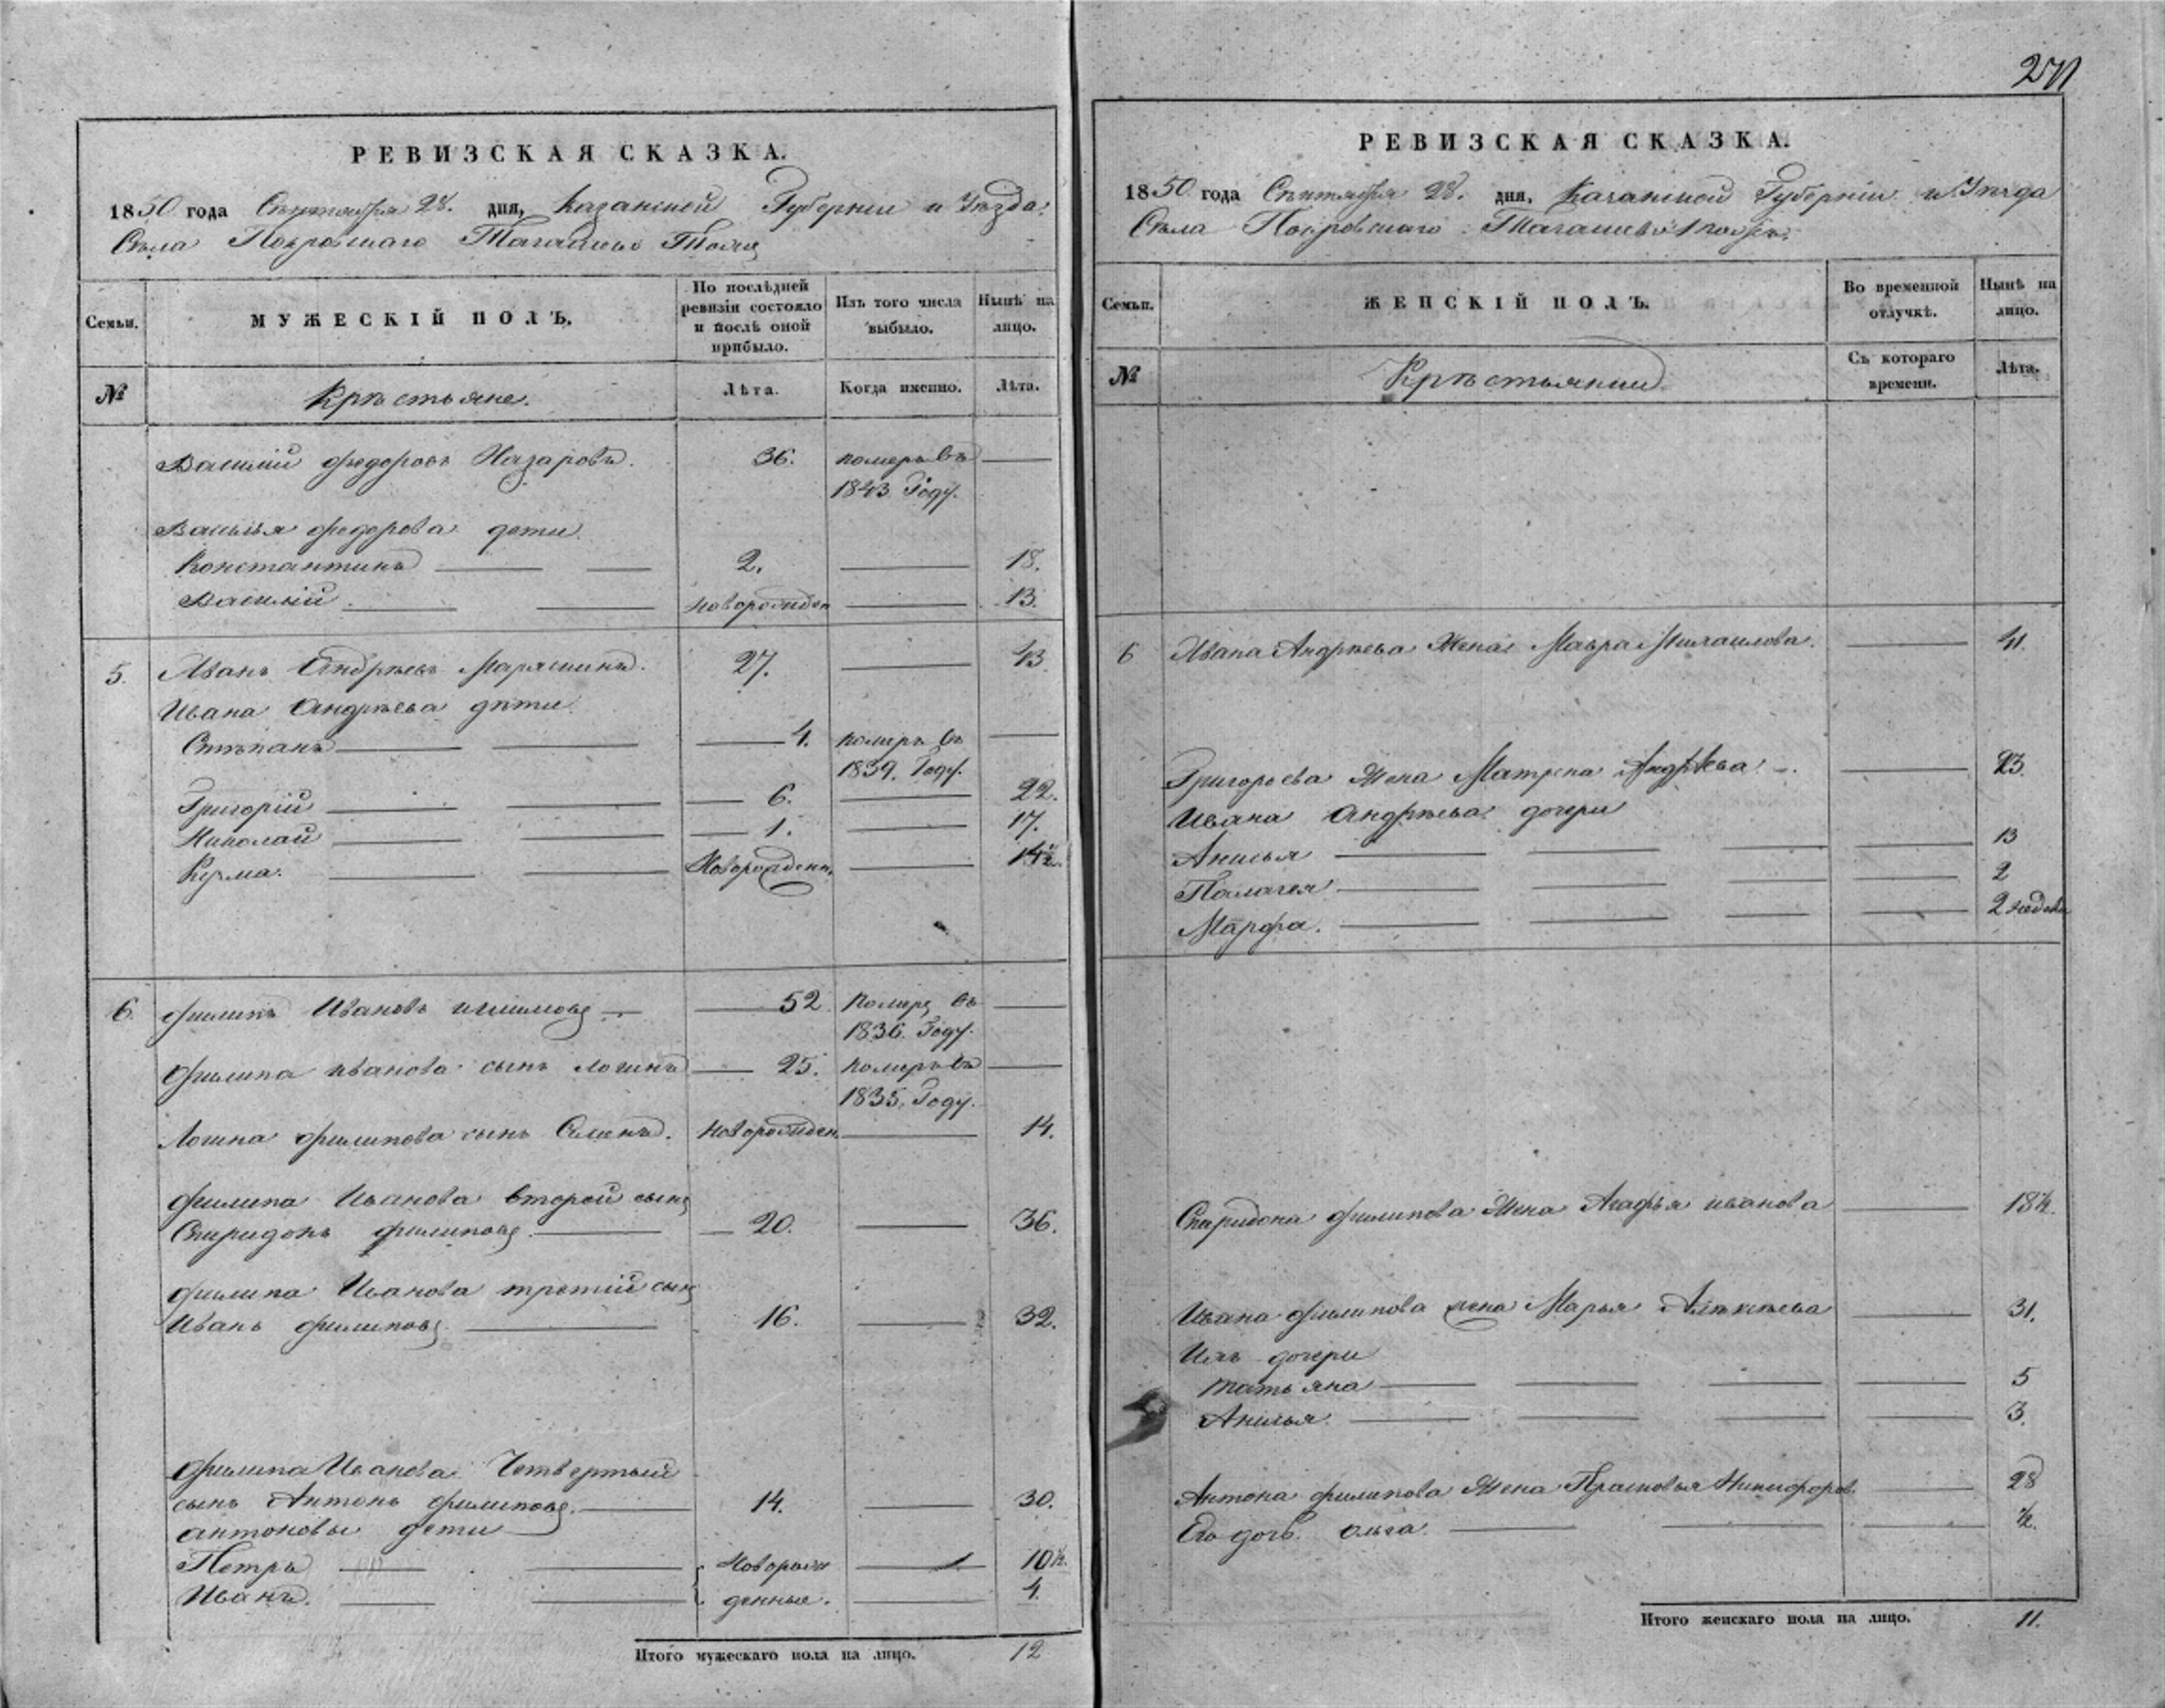 271
РЕВИЗСКАЯ СКАЗКА.
1850 года Сентября 28. дня, Казанской Губерніи и Уѣзда.
Села Покровскаго Тагашево тожъ
Семьи. МУЖЕСКІЙ ПОЛЪ. По послѣдней ревизіи состояло и послѣ оной прибыло. Изъ того числа выбыло. Нынѣ на лицо.
№ Крѣстьяне. Лѣта. Когда именно. Лѣта.
Василій Федоровъ Назаровъ. 36. померъ въ
1843 Году.
Василья Федорова дети
Константинъ 2. 18.
Василій новорожден 13.
5. Иванъ Андрѣевъ 27. 43
Ивана Андрѣева дѣти
Степанъ 4. померъ въ
1839. Году.
Григорій 6. 22.
Николай 1. 17.
Кузма. Новорожден. 14½.
6. Филипъ Ивановъ 52 Померъ въ
1836. Году.
Филипа Иванова сынъ Логинъ 25. померъ въ
1835. Году.
Логина Филипова сынъ Семенъ. новорожден. 14.
Филипа Иванова второй сынъ
Спиридонъ Филиповъ 20. 36.
Филипа Иванова третій сынъ
Иванъ Филиповъ 16. 32.
Филипа Иванова Четвертый
сынъ Антонъ Филиповъ. 14. 30.
антоновы дети
Петръ Новорож 10½.
Иванъ. денные. 4.
Итого мужескаго пола на лицо. 12
РЕВИЗСКАЯ СКАЗКА.
1850 года Сентября 28. дня, Казанской Губерніи и Уѣзда
Села Покровскаго Тагашево тожъ.
Семьи. ЖЕНСКІЙ ПОЛЪ. Во временной отлучкѣ. Нынѣ на лицо.
№ Крѣстьянки Съ котораго времени. Лѣта.
6 Ивана Андрѣева Жена Мавра Михаилова. 41.
Григорьева Жена Матрена Андрѣева. 23.
Ивана Андрѣева дочери
Анисья 13
Палагея 2
Марфа. 2 недели
Спиридона Филипова Жена Агафья иванова 18½.
Ивана Филипова жена Марья Алексѣева 31.
Ихъ дочери
татьяна 5
Анисья 3.
Антона Филипова Жена Прасковья Никифоров. 28
Его дочь. Ольга ½.
Итого женскаго пола на лицо. 11.